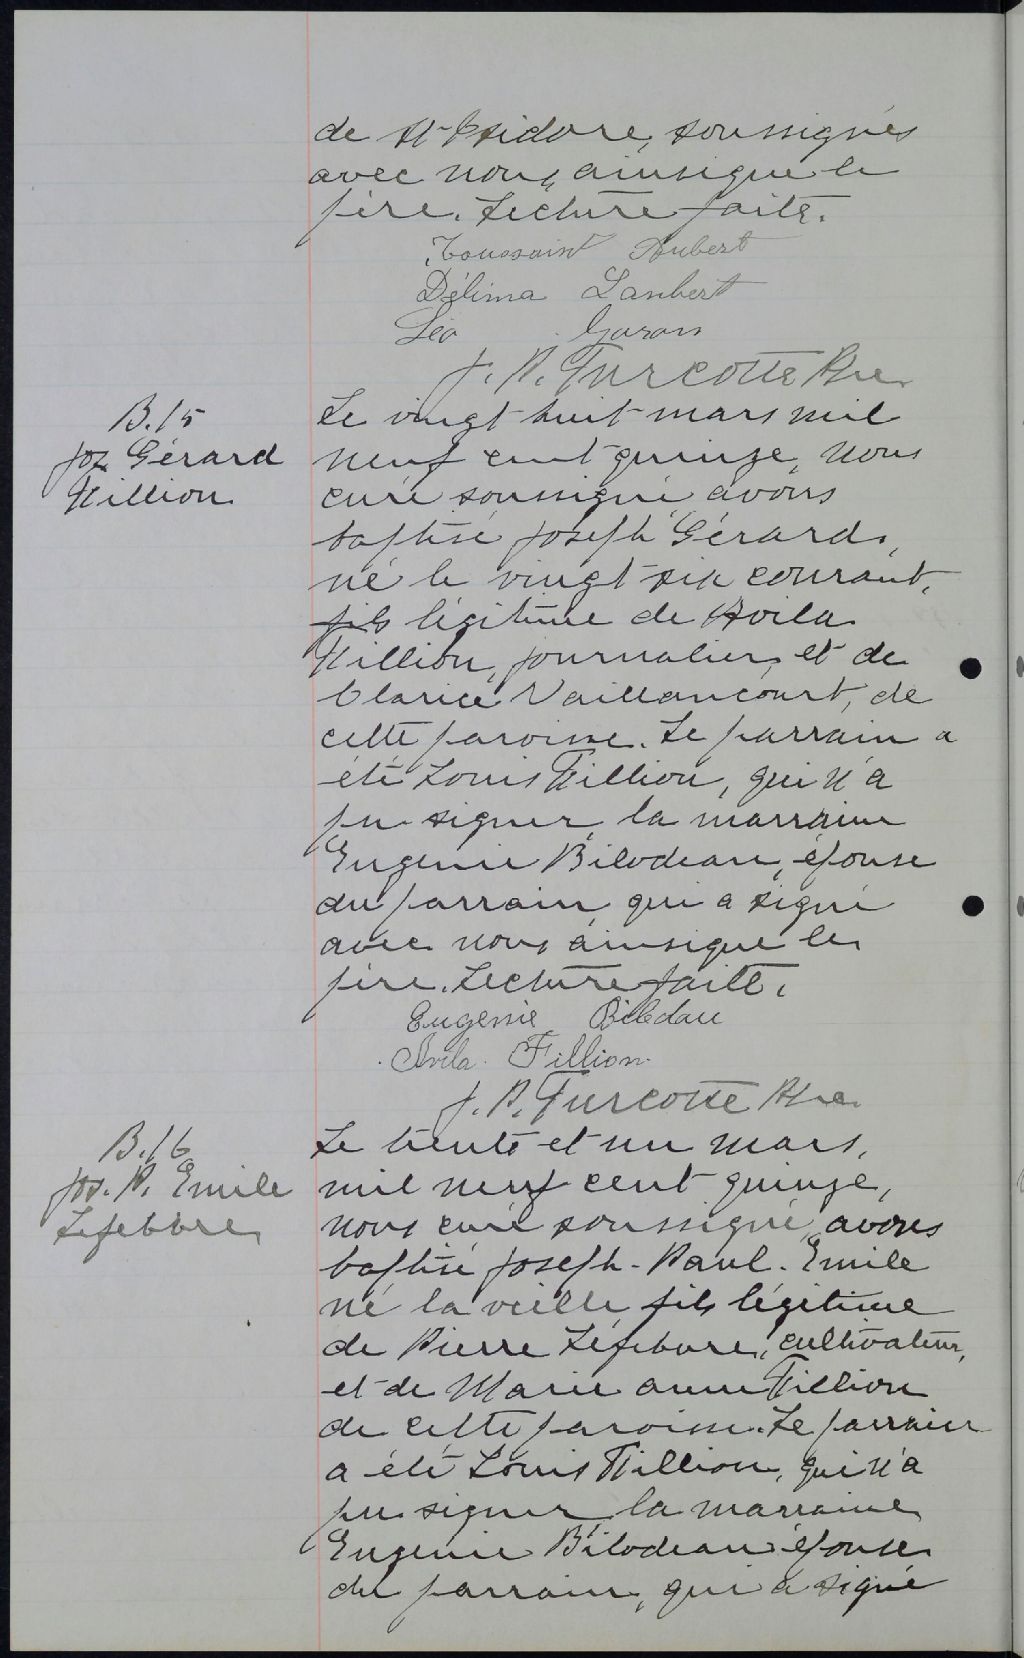 de St-Isidore, soussignés
avec nous, ainsique le
père. Lecture faite.
Toussaint Aubert
Délima Lambert
Léo Garon
J. P. Turcotte Ptre
B. 15
Jos Gérard
Fillion
Le vingt huit mars mil
neuf cent quinze, nous
curé soussigné, avons
baptisé Joseph Gérard,
né le vingt-six courant,
fils légitime de Avila
Fillion, journalier, et de
Clarice Vaillancourt, de
cette paroisse. Le parrain a
été Louis Fillion, qui n'a
pu signer, la marraine
Eugenie Bilodeau, épouse
du parrain, qui a signé
avec nous ainsique le
père. Lecture faite.
Eugenie Bilodau
Avila Fillion
J. P. Turcotte Ptre
B. 16
Jos. P. Emile
Lefebbre
Le trente et un mars,
mil neuf cent quinze,
nous curé soussigné, avons
baptisé Joseph-Paul-Emile
né la veille, fils légitime
de Pierre Léfebvre, cultivateur,
et de Marie anne Fillion
de cette paroisse. Le parrain
a été Louis Fillion, qui n'a
pu signer la marraine
Eugenie Bilodeau épouse
du parrain, qui a signé